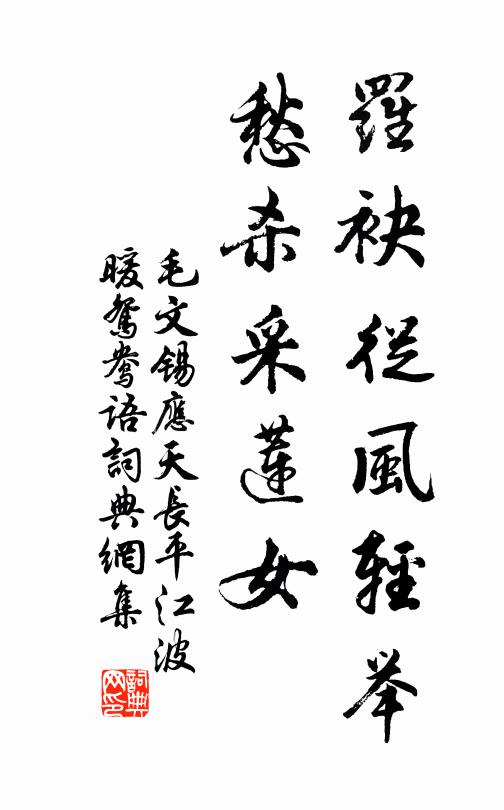 羅袂從風輕举
愁杀采蓮女
毛文錫應天長平江波
暖鴛鴦語詞典網集
詞典
网印